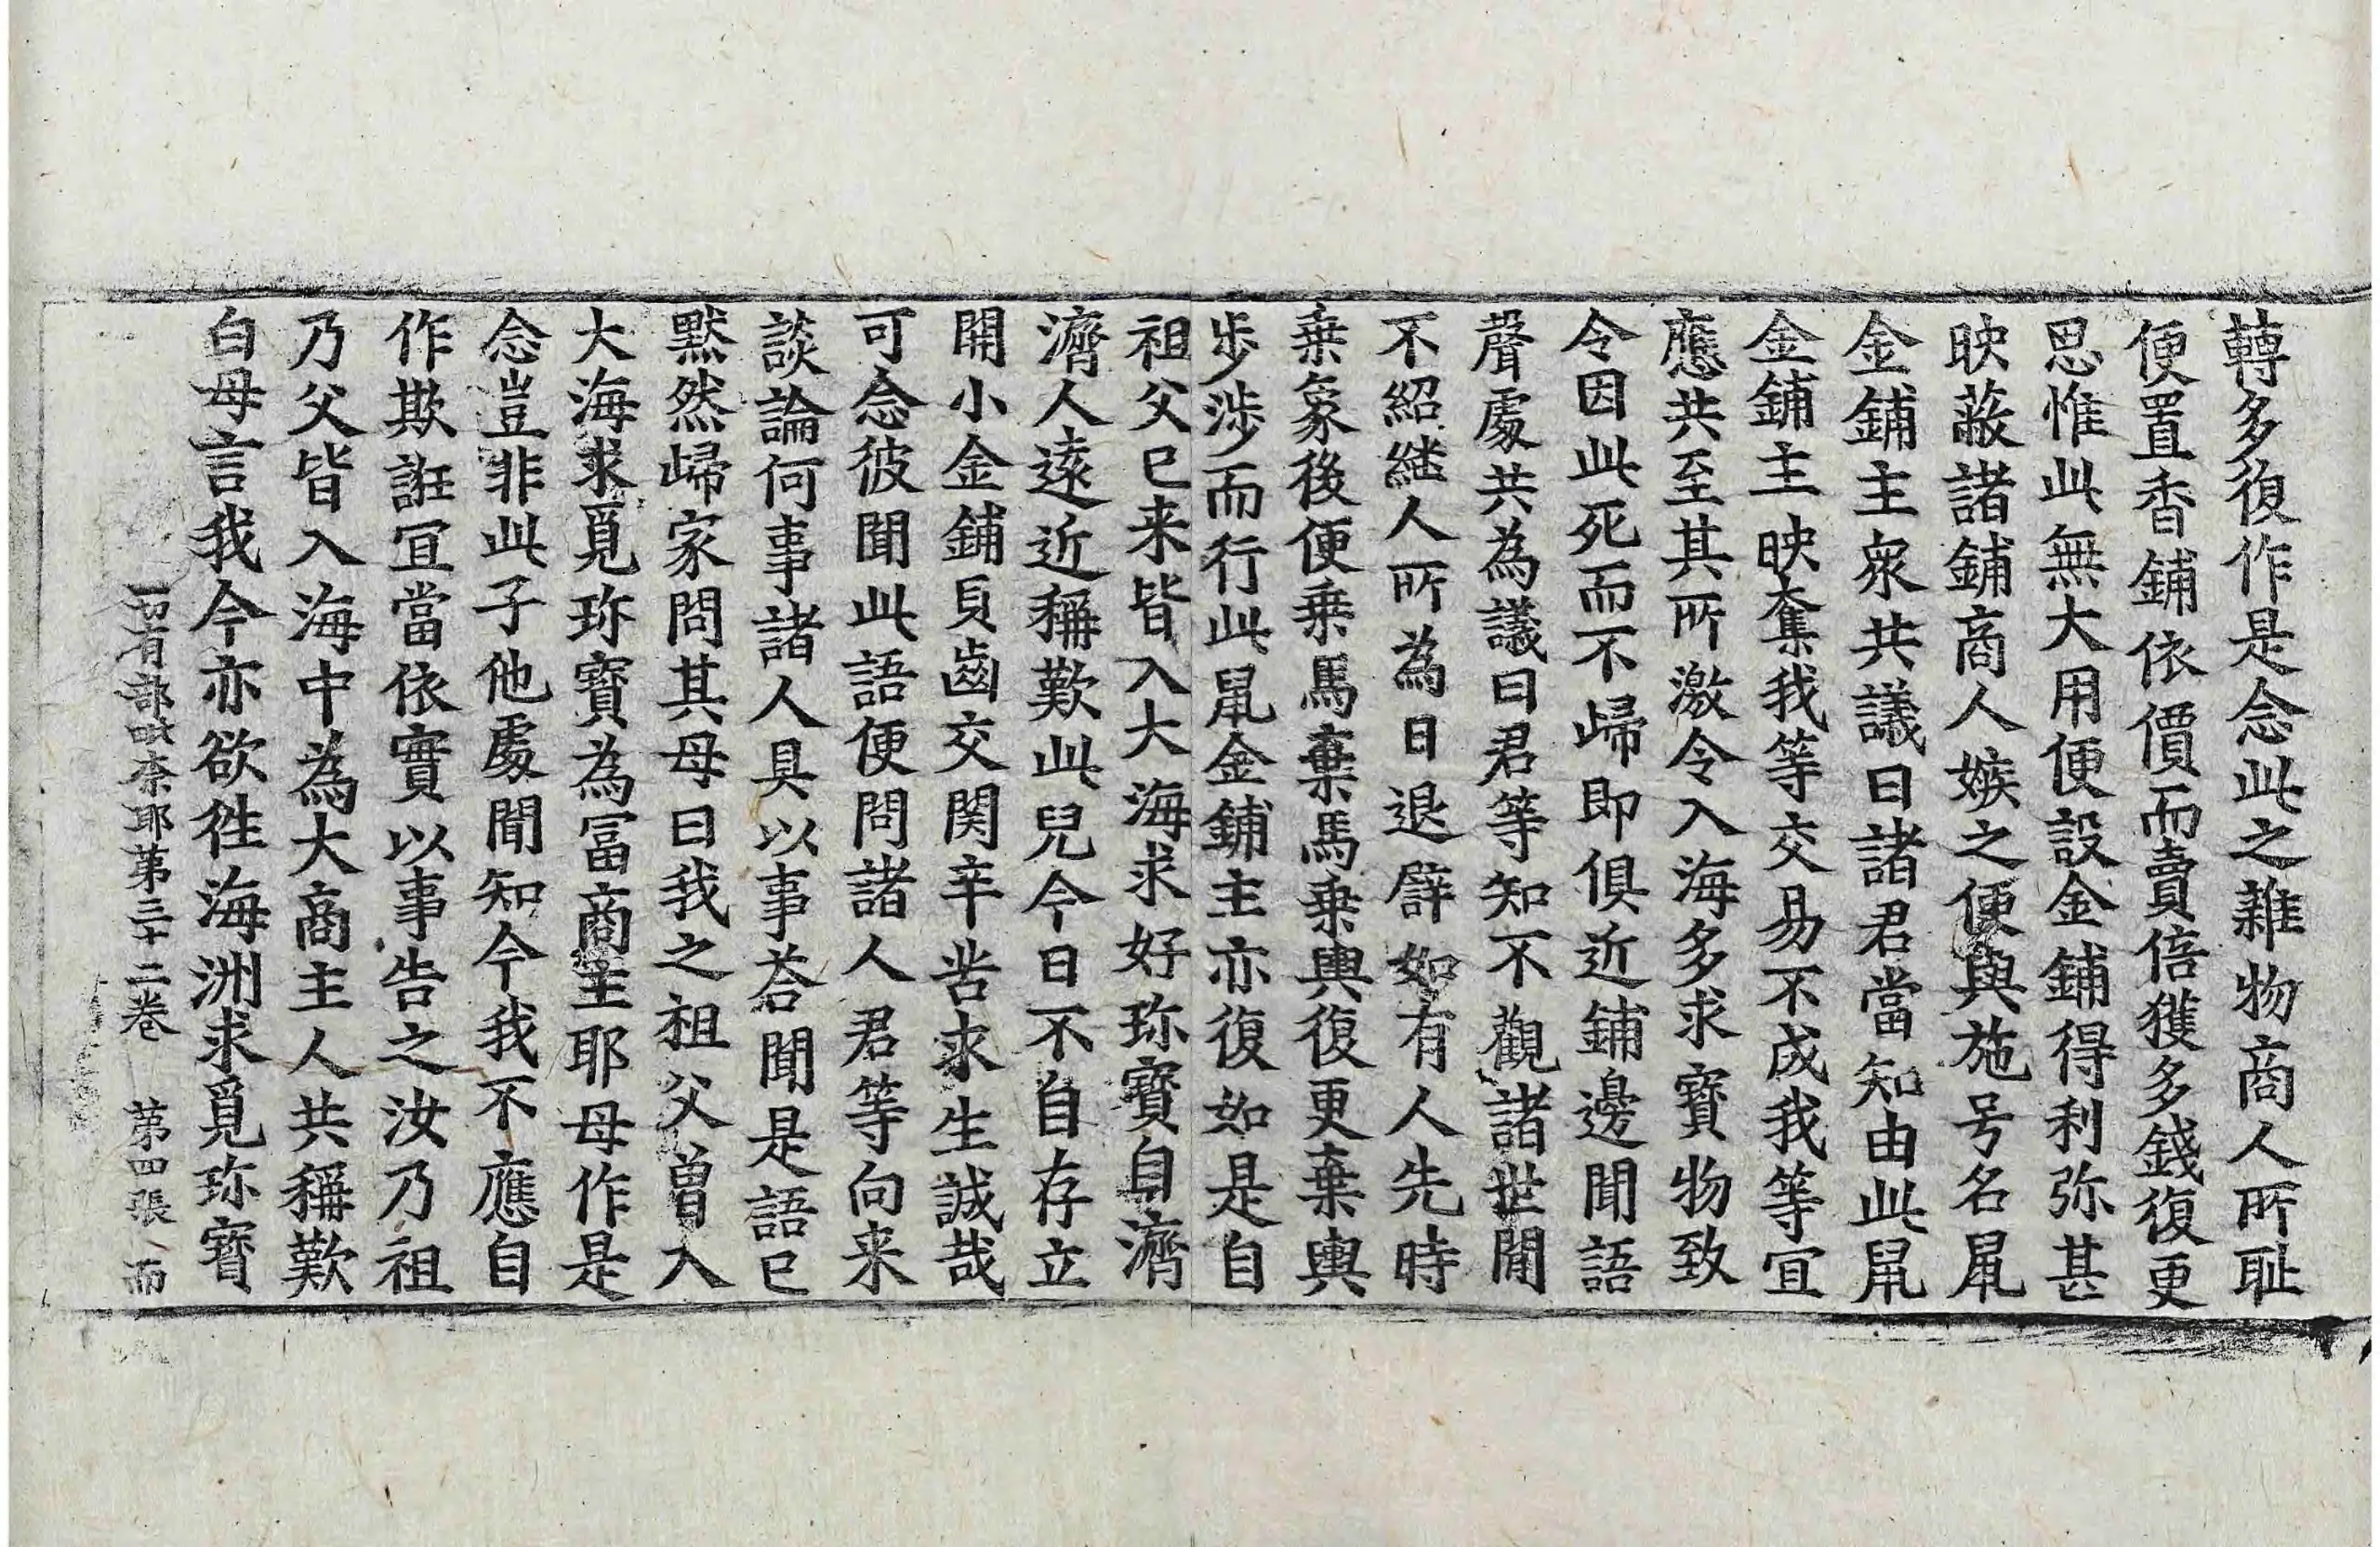 轉多復作是念此之雜物商人所耻
便置香鋪依價而賣倍獲多錢復更
思惟此無大用便設金鋪得利弥甚
映蔽諸鋪商人嫉之便與施号名鼠
金鋪主衆共議曰諸君當知由此鼠
金鋪主映奪我等交易不成我等冝
應共至其所激令入海多求寶物致
令因此死而不歸即俱近鋪邊聞語
聲處共為議曰君等知不觀諸世間
不紹継人所為日退譬如有人先時
乗象後便乗馬棄馬乗輿復更棄輿
步涉而行此鼠金鋪主亦復如是自
祖父已来皆入大海求好珎寶自濟
濟人遠近稱歎此兒今日不自存立
開小金鋪貝齒交関辛苦求生誠哉
可念彼聞此語便問諸人君等向来
談論何事諸人具以事荅聞是語已
黙然歸家問其母曰我之祖父曽入
大海求覓珎寶為冨商主耶母作是
念豈非此子他處聞知今我不應自
作欺誑冝當依實以事告之汝乃祖
乃父皆入海中為大商主人共稱歎
白母言我今亦欲徃海洲求覓珎寶
一切有部毗奈耶第三十二卷 第四張 而